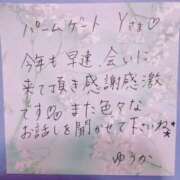 パームゲート Yさま♡
今年も早速、会いに
来て頂き感謝感激
です♡また色々な
お話しを聞かせて下さいね*
ゆうか